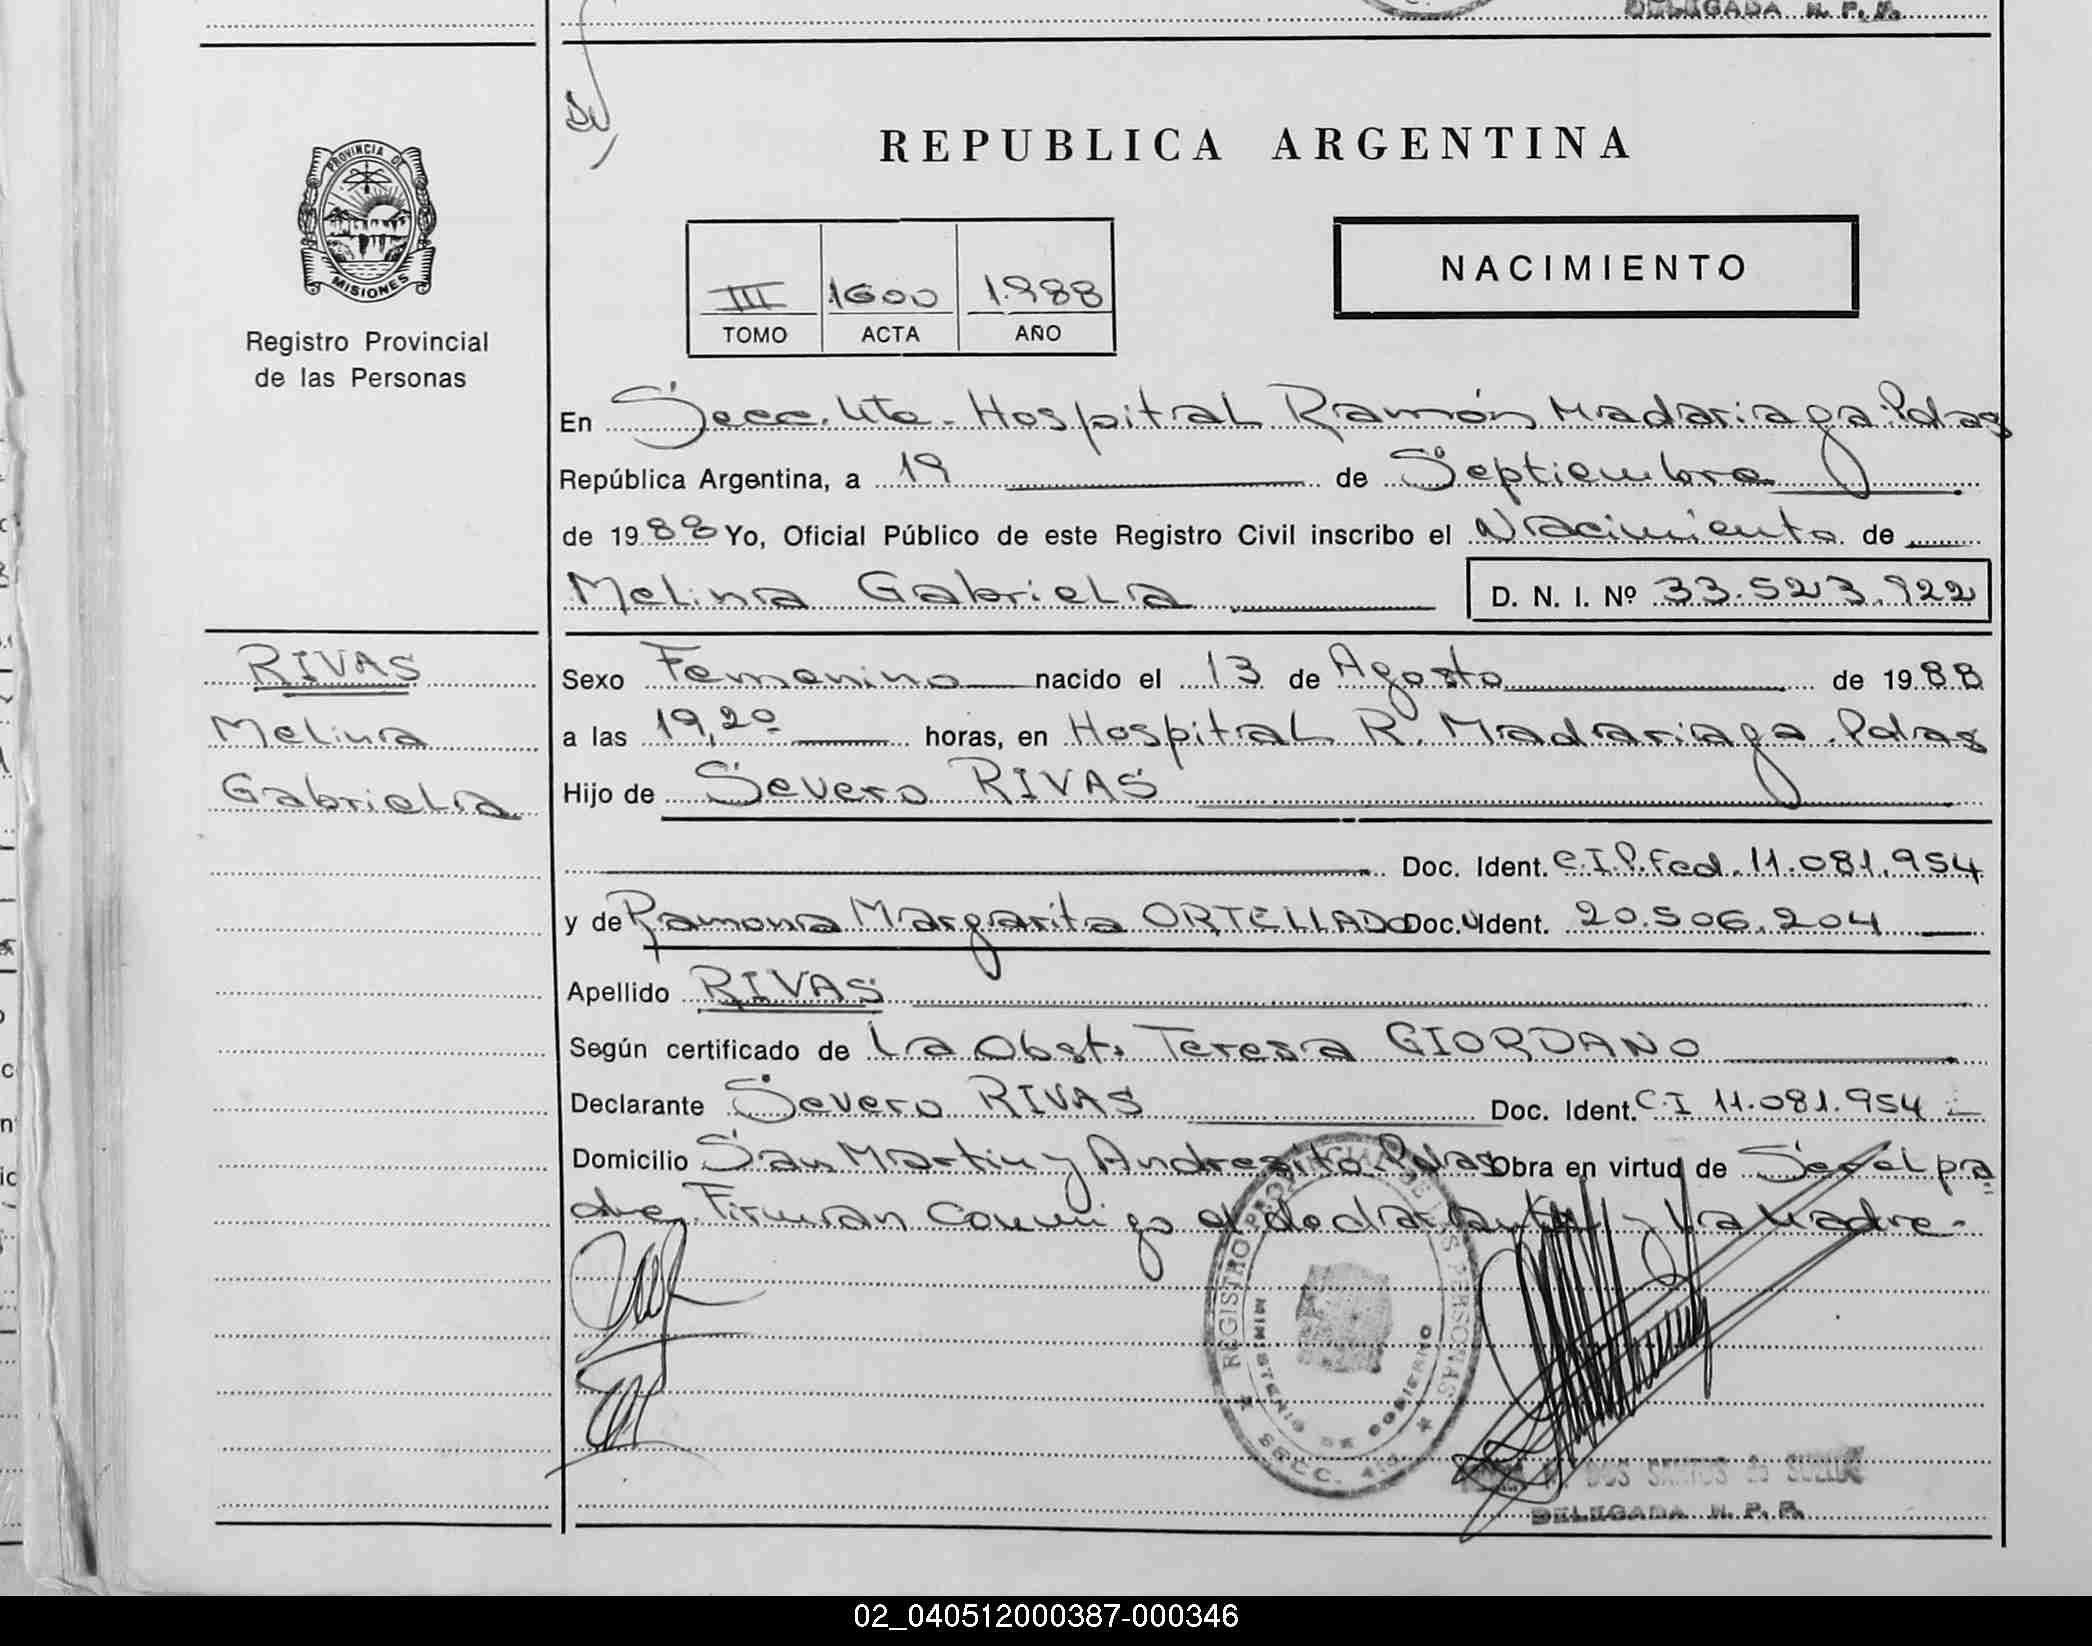 DELEGADA R. P. P.
PROVINCIA DE
MISIONES
Registro Provincial
de las Personas
REPUBLICA ARGENTINA
III 1600 1.988
TOMO ACTA AÑO
NACIMIENTO
En Secc. 4ta. Hospital Ramón Madariaga. Pdas
República Argentina, a 19 de Septiembre
de 1988 Yo, Oficial Público de este Registro Civil inscribo el Nacimiento de
Melina Gabriela D. N. I. Nº 33.523.922
RIVAS
Melina
Gabriela
Sexo Femenino nacido el 13 de Agosto de 1988
a las 19,20 horas, en Hospital R. Madariaga. Pdas
Hijo de Severo RIVAS
Doc. Ident. C.I.P.Fed. 11.081.954
y de Ramona Margarita ORTELLADO Doc. Ident. 20.506.204
Apellido RIVAS
Según certificado de La Obst. Teresa GIORDANO
Declarante Severo RIVAS Doc. Ident. C.I 11.081.954
Domicilio San Martin y Andresito. Pdas Obra en virtud de Ser el pa
dre. Firman Conmigo el declarante y La Madre.
REGISTRO PROVINCIAL DE LAS PERSONAS
MINISTERIO DE GOBIERNO
SECC. 4ta
DOS SANTOS de
DELEGADA R. P. P.
02_040512000387-000346